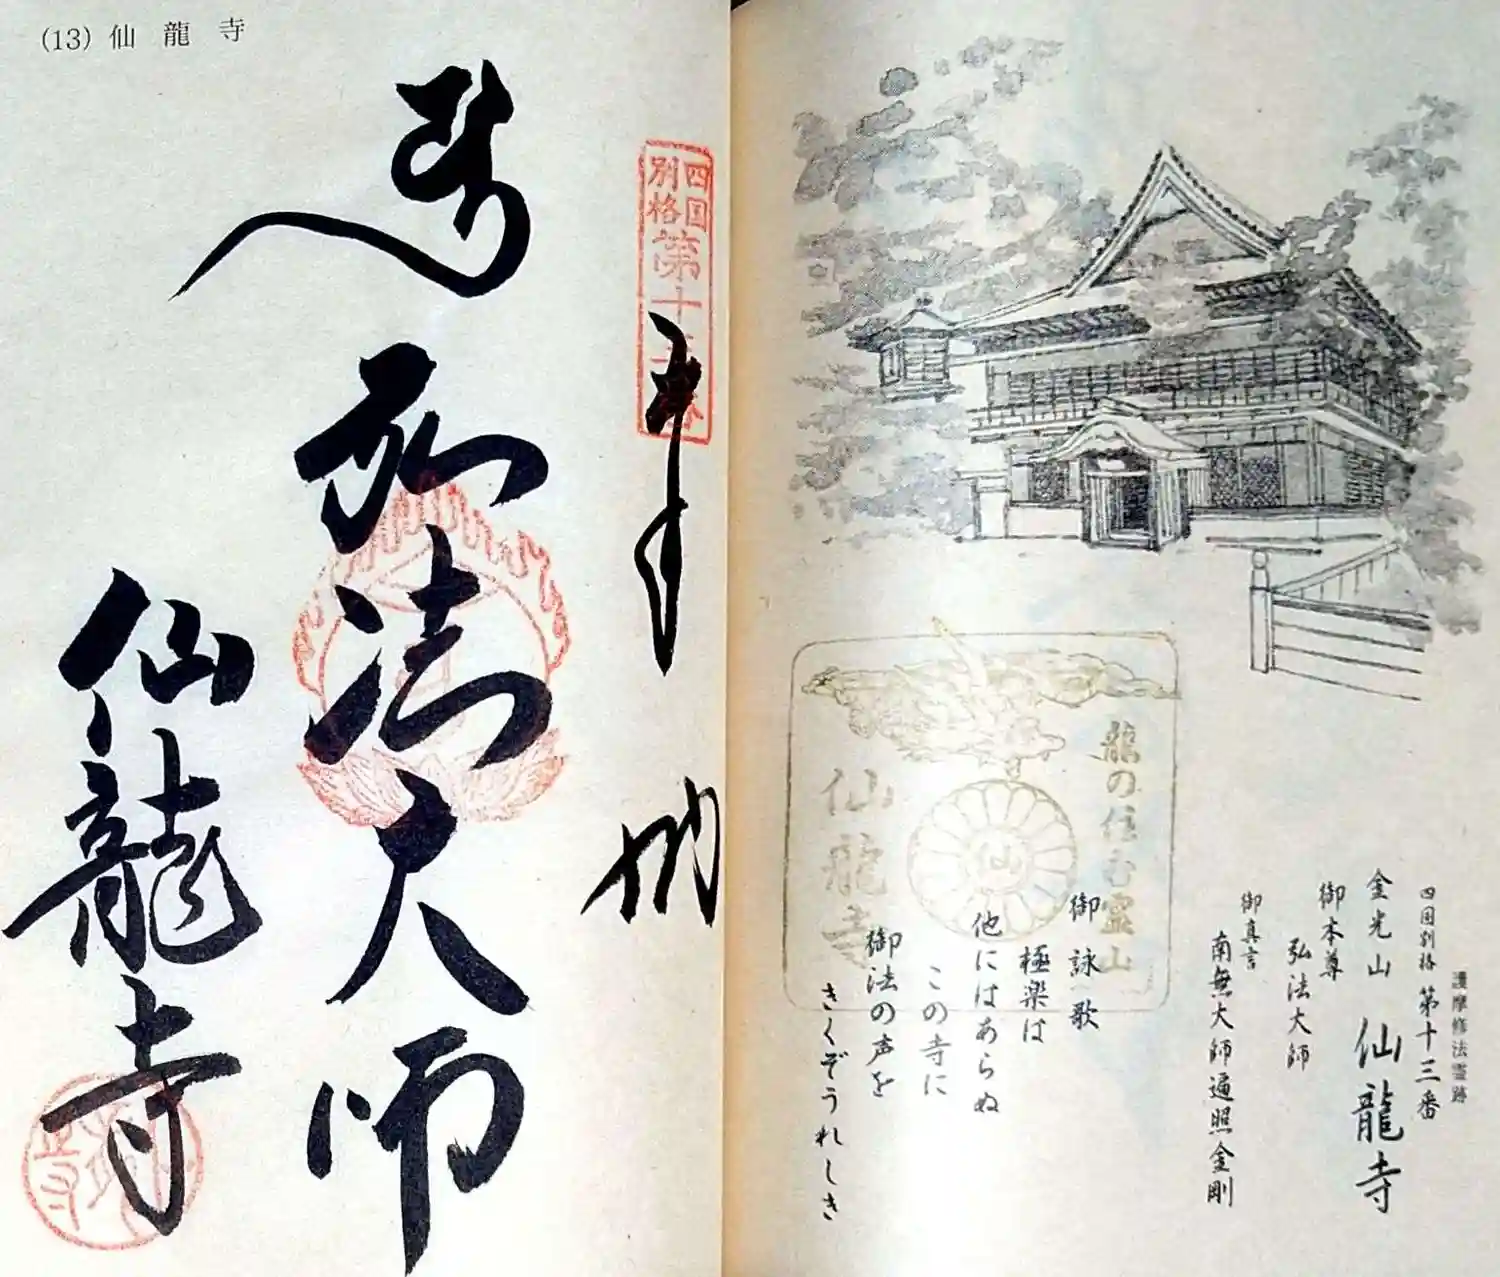 (13) 仙龍寺
四国
別格
第十三番
奉納
弘法大師
仙龍寺
護摩修法霊跡
四国別格 第十三番
金光山 仙龍寺
御本尊
弘法大師
御真言
南無大師遍照金剛
御詠歌
極楽は
他にはあらぬ
この寺に
御法の声を
きくぞうれしき
龍の住む霊山
仙
仙龍寺